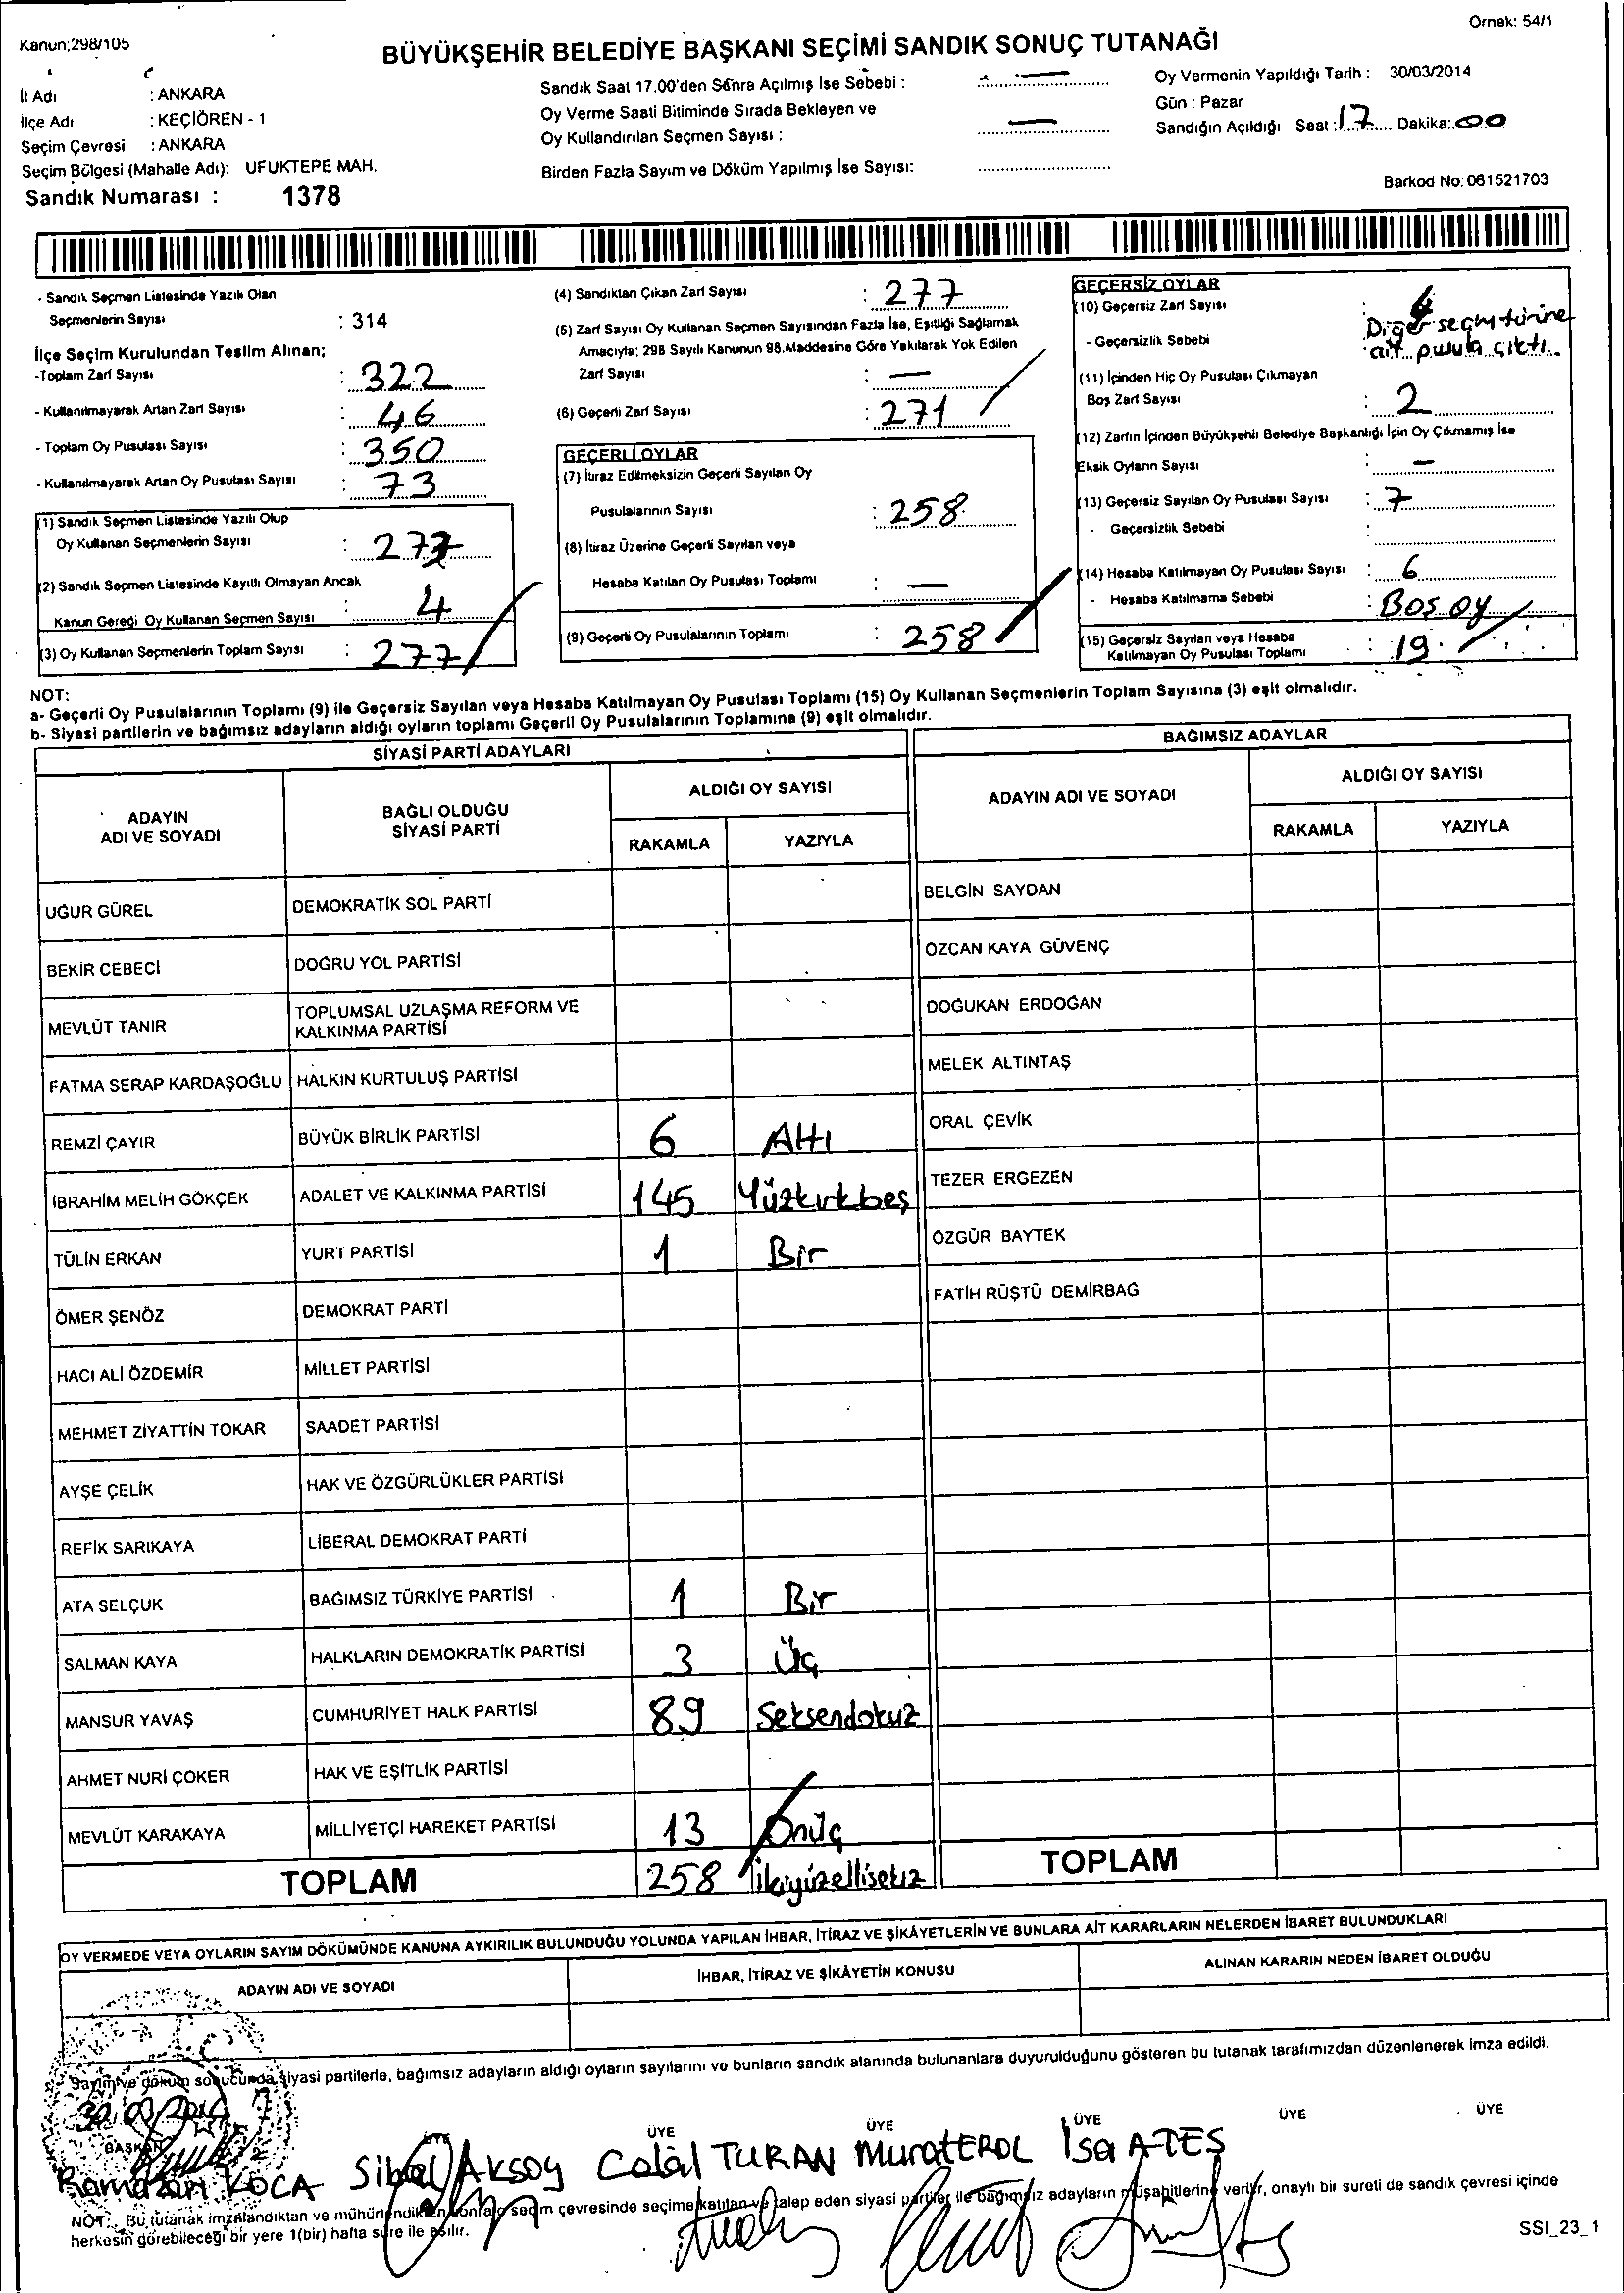 Kanun;298/105
Örnek: 54/1
BÜYÜKŞEHİR BELEDİYE BAŞKANI SEÇİMİ SANDIK SONUÇ TUTANAĞI
İl Adı : ANKARA
İlçe Adı : KEÇİÖREN - 1
Seçim Çevresi : ANKARA
Seçim Bölgesi (Mahalle Adı): UFUKTEPE MAH.
Sandık Numarası : 1378
Sandık Saat 17.00'den Sonra Açılmış İse Sebebi : —
Oy Verme Saati Bitiminde Sırada Bekleyen ve
Oy Kullandırılan Seçmen Sayısı : —
Birden Fazla Sayım ve Döküm Yapılmış İse Sayısı:
Oy Vermenin Yapıldığı Tarih : 30/03/2014
Gün : Pazar
Sandığın Açıldığı Saat : 17 Dakika: 00
Barkod No: 061521703
- Sandık Seçmen Listesinde Yazılı Olan
Seçmenlerin Sayısı : 314
İlçe Seçim Kurulundan Teslim Alınan;
-Toplam Zarf Sayısı : 322
- Kullanılmayarak Artan Zarf Sayısı : 46
- Toplam Oy Pusulası Sayısı : 350
- Kullanılmayarak Artan Oy Pusulası Sayısı : 73
(1) Sandık Seçmen Listesinde Yazılı Olup
Oy Kullanan Seçmenlerin Sayısı : 277
(2) Sandık Seçmen Listesinde Kayıtlı Olmayan Ancak
Kanun Gereği Oy Kullanan Seçmen Sayısı : 4
(3) Oy Kullanan Seçmenlerin Toplam Sayısı : 277
(4) Sandıktan Çıkan Zarf Sayısı : 277
(5) Zarf Sayısı Oy Kullanan Seçmen Sayısından Fazla İse, Eşitliği Sağlamak
Amacıyla; 298 Sayılı Kanunun 98.Maddesine Göre Yakılarak Yok Edilen
Zarf Sayısı : —
(6) Geçerli Zarf Sayısı : 271
GEÇERLİ OYLAR
(7) İtiraz Edilmeksizin Geçerli Sayılan Oy
Pusulalarının Sayısı : 258
(8) İtiraz Üzerine Geçerli Sayılan veya
Hesaba Katılan Oy Pusulası Toplamı : —
(9) Geçerli Oy Pusulalarının Toplamı : 258
GEÇERSİZ OYLAR
(10) Geçersiz Zarf Sayısı :
- Geçersizlik Sebebi : Diğer seçim türüne
ait pusula çıktı.
(11) İçinden Hiç Oy Pusulası Çıkmayan
Boş Zarf Sayısı : 2
(12) Zarfın İçinden Büyükşehir Belediye Başkanlığı İçin Oy Çıkmamış İse
Eksik Oyların Sayısı : —
(13) Geçersiz Sayılan Oy Pusulası Sayısı : 7
- Geçersizlik Sebebi :
(14) Hesaba Katılmayan Oy Pusulası Sayısı : 6
- Hesaba Katılmama Sebebi : Boş oy
(15) Geçersiz Sayılan veya Hesaba
Katılmayan Oy Pusulası Toplamı : 19
NOT:
a- Geçerli Oy Pusulalarının Toplamı (9) ile Geçersiz Sayılan veya Hesaba Katılmayan Oy Pusulası Toplamı (15) Oy Kullanan Seçmenlerin Toplam Sayısına (3) eşit olmalıdır.
b- Siyasi partilerin ve bağımsız adayların aldığı oyların toplamı Geçerli Oy Pusulalarının Toplamına (9) eşit olmalıdır.
SİYASİ PARTİ ADAYLARI
ADAYIN
ADI VE SOYADI
BAĞLI OLDUĞU
SİYASİ PARTİ
ALDIĞI OY SAYISI
RAKAMLA YAZIYLA
UĞUR GÜREL DEMOKRATİK SOL PARTİ
BEKİR CEBECİ DOĞRU YOL PARTİSİ
MEVLÜT TANIR TOPLUMSAL UZLAŞMA REFORM VE
KALKINMA PARTİSİ
FATMA SERAP KARDAŞOĞLU HALKIN KURTULUŞ PARTİSİ
REMZİ ÇAYIR BÜYÜK BİRLİK PARTİSİ 6 Altı
İBRAHİM MELİH GÖKÇEK ADALET VE KALKINMA PARTİSİ 145 Yüzkırkbeş
TÜLİN ERKAN YURT PARTİSİ 1 Bir
ÖMER ŞENÖZ DEMOKRAT PARTİ
HACI ALİ ÖZDEMİR MİLLET PARTİSİ
MEHMET ZİYATTİN TOKAR SAADET PARTİSİ
AYŞE ÇELİK HAK VE ÖZGÜRLÜKLER PARTİSİ
REFİK SARIKAYA LİBERAL DEMOKRAT PARTİ
ATA SELÇUK BAĞIMSIZ TÜRKİYE PARTİSİ 1 Bir
SALMAN KAYA HALKLARIN DEMOKRATİK PARTİSİ 3 Üç
MANSUR YAVAŞ CUMHURİYET HALK PARTİSİ 89 Seksendokuz
AHMET NURİ ÇOKER HAK VE EŞİTLİK PARTİSİ
MEVLÜT KARAKAYA MİLLİYETÇİ HAREKET PARTİSİ 13 Onüç
TOPLAM 258 İkiyüzellisekiz
BAĞIMSIZ ADAYLAR
ADAYIN ADI VE SOYADI
ALDIĞI OY SAYISI
RAKAMLA YAZIYLA
BELGİN SAYDAN
ÖZCAN KAYA GÜVENÇ
DOĞUKAN ERDOĞAN
MELEK ALTINTAŞ
ORAL ÇEVİK
TEZER ERGEZEN
ÖZGÜR BAYTEK
FATİH RÜŞTÜ DEMİRBAĞ
TOPLAM
OY VERMEDE VEYA OYLARIN SAYIM DÖKÜMÜNDE KANUNA AYKIRILIK BULUNDUĞU YOLUNDA YAPILAN İHBAR, İTİRAZ VE ŞİKÂYETLERİN VE BUNLARA AİT KARARLARIN NELERDEN İBARET BULUNDUKLARI
ADAYIN ADI VE SOYADI
İHBAR, İTİRAZ VE ŞİKÂYETİN KONUSU
ALINAN KARARIN NEDEN İBARET OLDUĞU
Sayım ve döküm sonucunda, siyasi partilerle, bağımsız adayların aldığı oyların sayılarını ve bunların sandık alanında bulunanlara duyurulduğunu gösteren bu tutanak tarafımızdan düzenlenerek imza edildi.
BAŞKAN ÜYE ÜYE ÜYE ÜYE ÜYE
Ramazan KOCA Sibel AKSOY Celâl TURAN Murat EROL İsa ATEŞ
NOT: Bu tutanak imzalandıktan ve mühürlendikten sonra, o seçim çevresinde seçime katılan ve talep eden siyasi partiler ile bağımsız adayların müşahitlerine verilir, onaylı bir sureti de sandık çevresi içinde
herkesin görebileceği bir yere 1(bir) hafta süre ile asılır.
SSI_23_1